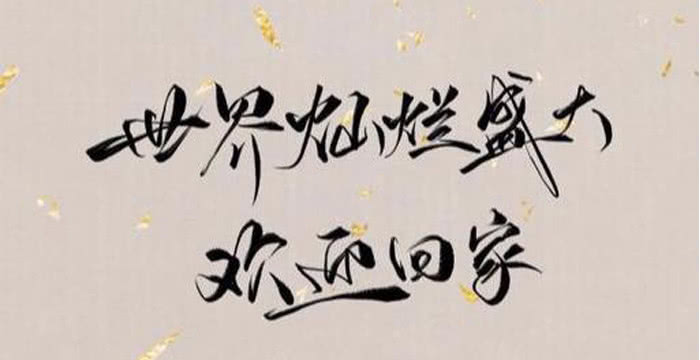 世界灿烂盛大
欢迎回家